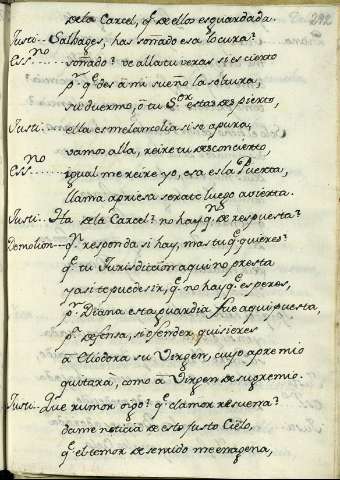 242
dela Carcel, q̃ de ellos es guardada.
Justi.. Salbages, has soñado esa locura?
Ess.no soñado? ve alla tu veras si es cierto
p.r q̃ des â mi sueño la soltura,
si duermo, ô tu S.or estas despierto,
Justi.. ella es melancolia si se apura,
vamos alla, reire tu desconcierto,
Ess.no igual me reire yo, esa es la Puerta,
llama apriesa serate luego avierta.
Justi.. Ha dela Carcel? no hay q.n de respuesta?
Demolion q.n responda si hay, mas tu q̃ quieres?
q̃ tu Jurisdiccion aqui no presta
y asi te puedes ir, q̃ no hay q̃ esperes,
p.r Diana esta guardia fue aqui puesta,
p.a defensa, si ofender quisieres
â Eliodora su Virgen, cuyo apremio
quitara, como â Virgen de su gremio.
Justi.. Que rumor oigo? q̃ clamor resuena?
dame noticia de esto justo Cielo,
q̃ el temor de sentido me enagena,